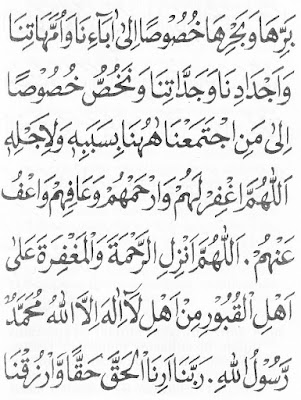 بَرِّهَا وَبَحْرِهَا خُصُوْصًا اِلَى اٰبَآءِنَا وَاُمَّهَاتِنَا
وَاَجْدَادِنَا وَجَدَّاتِنَا وَنَخُصُّ خُصُوْصًا
اِلَى مَنِ اجْتَمَعْنَا هٰهُنَا بِسَبَبِهِ وَلِاَجْلِهِ
اَللّٰهُمَّ اغْفِرْ لَهُمْ وَارْحَمْهُمْ وَعَافِهِمْ وَاعْفُ
عَنْهُمْ . اَللّٰهُمَّ اَنْزِلِ الرَّحْمَةَ وَالْمَغْفِرَةَ عَلَى
اَهْلِ الْقُبُوْرِ مِنْ اَهْلِ لَآ اِلٰهَ اِلَّا اللّٰهُ مُحَمَّدٌ
رَسُوْلُ اللّٰهِ . رَبَّنَا اَرِنَا الْحَقَّ حَقًّا وَارْزُقْنَا